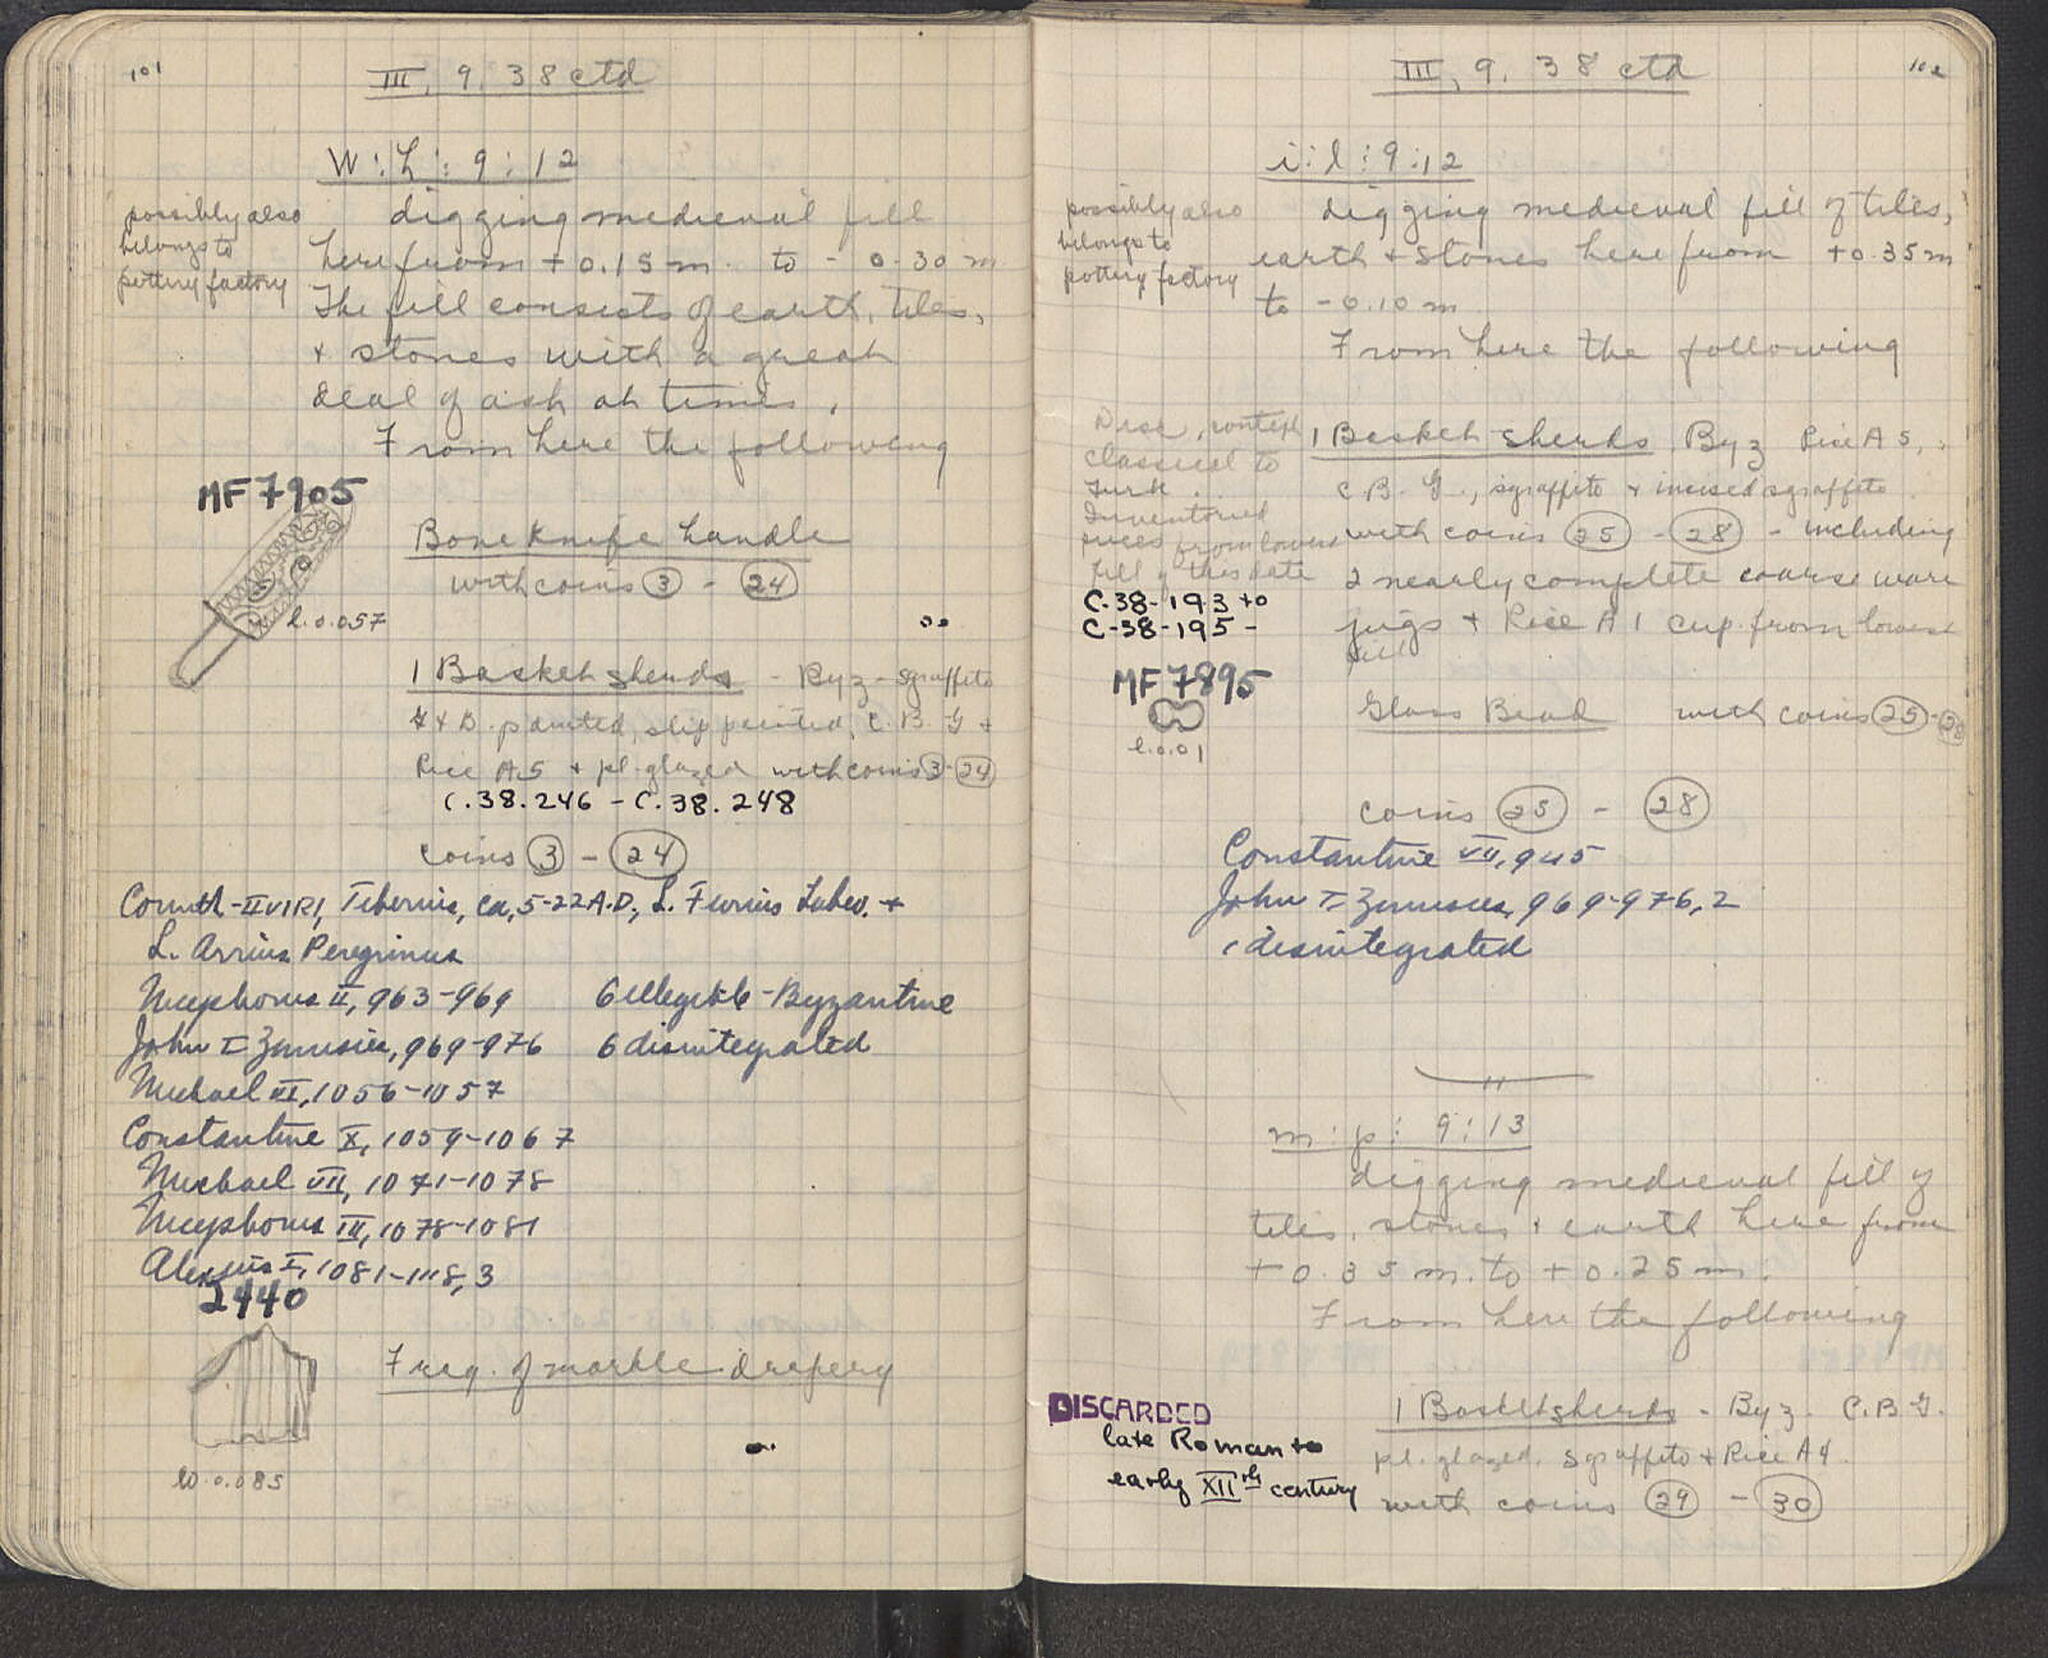 101
III. 9. 38 ctd
W:L: 9:12
possibly also
belongs to
pottery factory
digging medieval fill
here from +0.15 m. to -0.30 m
The fill consists of earth, tiles,
+ stones with a great
deal of ash at times.
From here the following
MF 7905
l.0.057
Bone knife handle
with coins 3 - 24
1 Basket sherds - Byz - sgraffito
G + B. painted, slip painted, C. B. G +
Rice A.5 + pl. glazed with coins 3-24
C.38.246 - C.38.248
coins 3 - 24
Corinth - IIVIRI, Tiberius, ca. 5-22 A.D., L. Furius Labeo. +
L. Arrius Peregrinus
Nicephorus II, 963-969
6 illegible - Byzantine
John I Zimisces, 969-976
6 disintegrated
Michael VI, 1056-1057
Constantine X, 1059-1067
Michael VII, 1071-1078
Nicephorus III, 1078-1081
Alexius I, 1081-1118, 3
2440
Frag. of marble drapery
W.0.085
III, 9. 38 ctd
102
i:l:9:12
possibly also
belongs to
pottery factory
digging medieval fill of tiles,
earth + stones here from +0.35 m
to -0.10 m
From here the following
Disc, context
classical to
Turk.
Inventoried
pieces from lowest
fill of this date
C-38-193 to
C-38-195 -
1 Basket sherds Byz Rice A 5,
C. B. G., sgraffito + incised sgraffito
with coins 25 - 28 - including
2 nearly complete coarse ware
jugs + Rice A 1 cup from lowest
fill
MF 7895
l.0.01
Glass Bead with coins 25-28
coins 25 - 28
Constantine VII, 945
John I Zimisces, 969-976, 2
1 disintegrated
m:p: 9:13
digging medieval fill of
tiles, stones + earth here from
+0.35 m. to +0.25 m.
From here the following
DISCARDED
late Roman to
early XIIth century
1 Basket sherds - Byz. C.B.G.
pl. glazed, sgraffito + Rice A 4
with coins 29 - 30